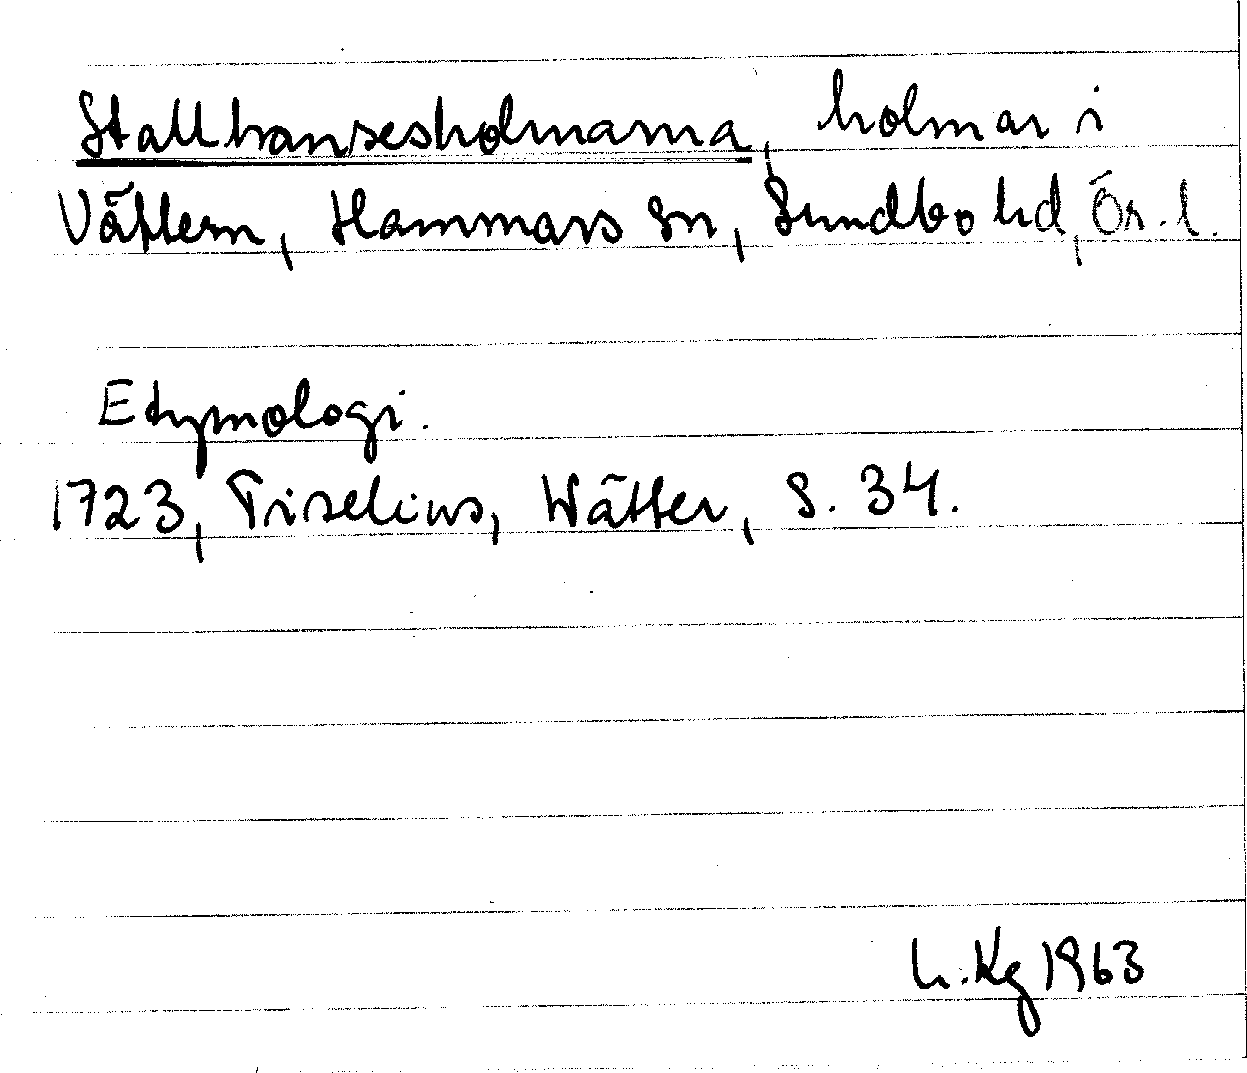 Stallhansesholmarna, holmar i
Vättern, Hammars sn, Sundbo hd, Ör. l.
Etymologi.
1723, Tiselius, Wätter, S. 34.
h. Kg 1963